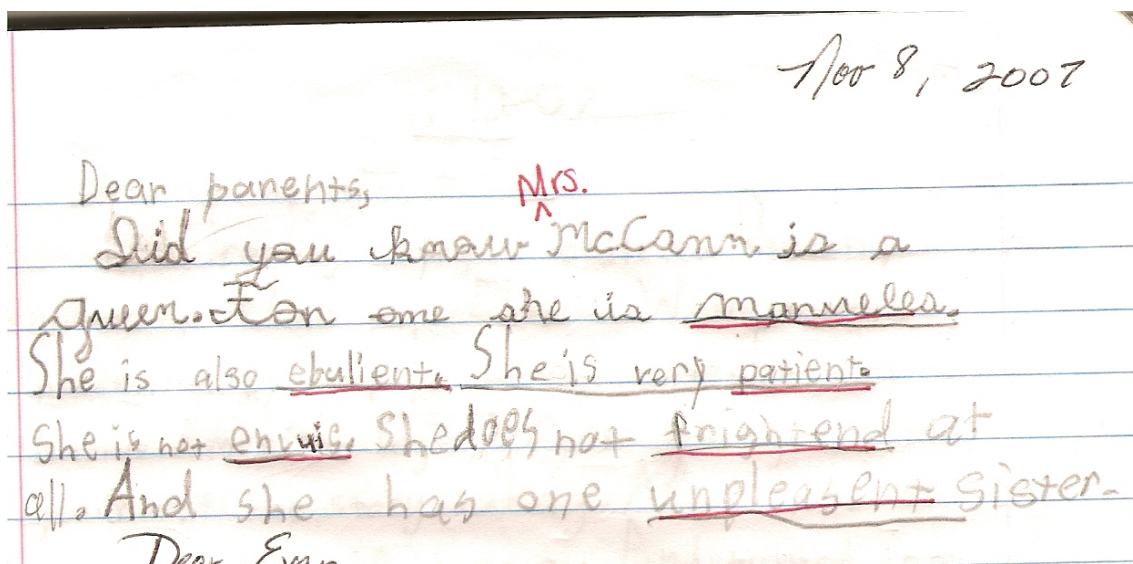 Nov 8, 2007
Dear parents,
Mrs.
Did you know McCann is a
queen. For one she is manneles.
She is also ebulient. She is very patient.
She is not envuis. She does not frightend at
all. And she has one unpleasent sister.
Dear